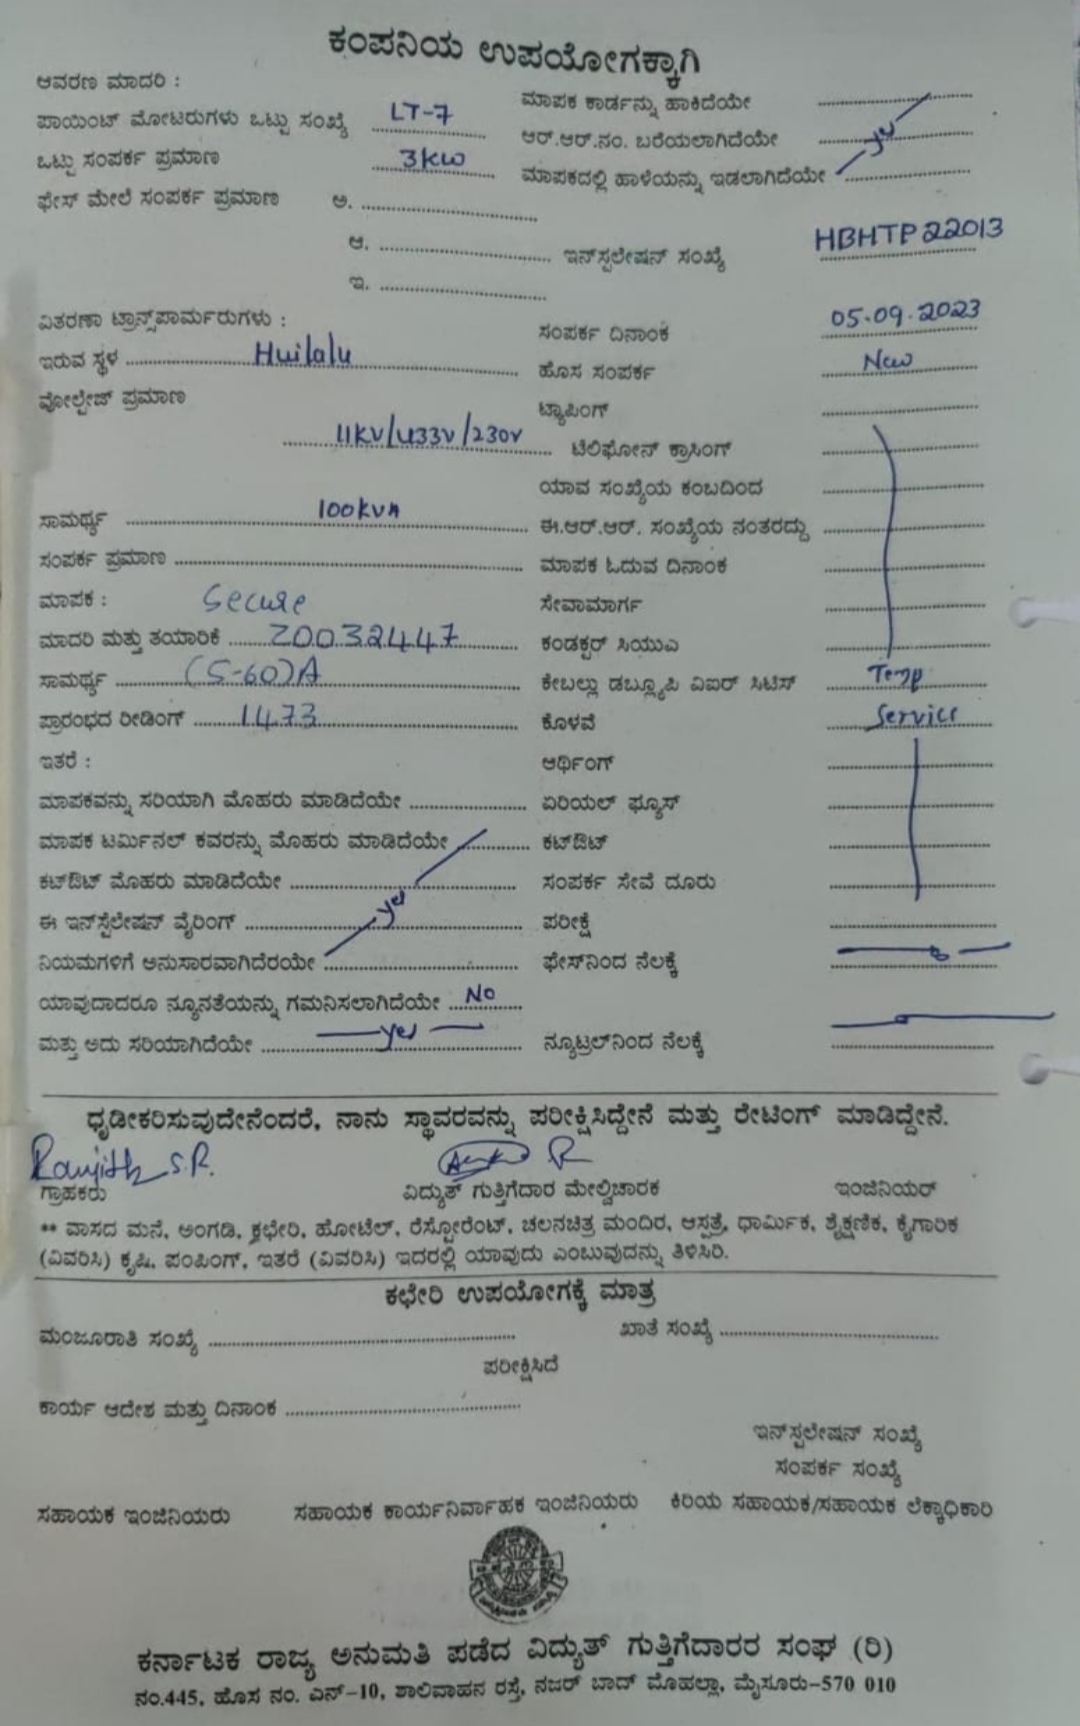 ಕಂಪನಿಯ ಉಪಯೋಗಕ್ಕಾಗಿ
ಆವರಣ ಮಾದರಿ :
ಮಾಪಕ ಕಾರ್ಡನ್ನು ಹಾಕಿದೆಯೇ
ಪಾಯಿಂಟ್ ಮೋಟರುಗಳು ಒಟ್ಟು ಸಂಖ್ಯೆ LT-7
ಆರ್.ಆರ್.ನಂ. ಬರೆಯಲಾಗಿದೆಯೇ yes
ಒಟ್ಟು ಸಂಪರ್ಕ ಪ್ರಮಾಣ 3kw
ಮಾಪಕದಲ್ಲಿ ಹಾಳೆಯನ್ನು ಇಡಲಾಗಿದೆಯೇ
ಫೇಸ್ ಮೇಲೆ ಸಂಪರ್ಕ ಪ್ರಮಾಣ ಅ.
ಆ. ಇನ್‌ಸ್ಪಲೇಷನ್ ಸಂಖ್ಯೆ HBHTP22013
ಇ.
ವಿತರಣಾ ಟ್ರಾನ್ಸ್‌ಪಾರ್ಮರುಗಳು :
ಸಂಪರ್ಕ ದಿನಾಂಕ 05.09.2023
ಇರುವ ಸ್ಥಳ Huilalu
ಹೊಸ ಸಂಪರ್ಕ New
ವೋಲ್ಟೇಜ್ ಪ್ರಮಾಣ
ಟ್ಯಾಪಿಂಗ್
11KV/433V/230V ಟೆಲಿಫೋನ್ ಕ್ರಾಸಿಂಗ್
ಯಾವ ಸಂಖ್ಯೆಯ ಕಂಬದಿಂದ
ಸಾಮರ್ಥ್ಯ 100kva ಈ.ಆರ್.ಆರ್. ಸಂಖ್ಯೆಯ ನಂತರದ್ದು
ಸಂಪರ್ಕ ಪ್ರಮಾಣ ಮಾಪಕ ಓದುವ ದಿನಾಂಕ
ಮಾಪಕ : Secure ಸೇವಾಮಾರ್ಗ
ಮಾದರಿ ಮತ್ತು ತಯಾರಿಕೆ Z0032447 ಕಂಡಕ್ಟರ್ ಸಿಯುಎ
ಸಾಮರ್ಥ್ಯ (5-60)A ಕೇಬಲ್ಲು ಡಬ್ಲ್ಯೂಪಿ ವಿಐರ್ ಸಿಟಿಸ್ Temp
ಪ್ರಾರಂಭದ ರೀಡಿಂಗ್ 1473 ಕೊಳವೆ Service
ಇತರೆ : ಆರ್ಥಿಂಗ್
ಮಾಪಕವನ್ನು ಸರಿಯಾಗಿ ಮೊಹರು ಮಾಡಿದೆಯೇ ಏರಿಯಲ್ ಫ್ಯೂಸ್
ಮಾಪಕ ಟರ್ಮಿನಲ್ ಕವರನ್ನು ಮೊಹರು ಮಾಡಿದೆಯೇ ಕಟ್‌ಔಟ್
ಕಟ್‌ಔಟ್ ಮೊಹರು ಮಾಡಿದೆಯೇ ಸಂಪರ್ಕ ಸೇವೆ ದೂರು
ಈ ಇನ್‌ಸ್ಪೆಲೇಷನ್ ವೈರಿಂಗ್ yes ಪರೀಕ್ಷೆ
ನಿಯಮಗಳಿಗೆ ಅನುಸಾರವಾಗಿದೆರಯೇ ಫೇಸ್‌ನಿಂದ ನೆಲಕ್ಕೆ
ಯಾವುದಾದರೂ ನ್ಯೂನತೆಯನ್ನು ಗಮನಿಸಲಾಗಿದೆಯೇ No
ಮತ್ತು ಅದು ಸರಿಯಾಗಿದೆಯೇ yes ನ್ಯೂಟ್ರಲ್‌ನಿಂದ ನೆಲಕ್ಕೆ
ಧೃಡೀಕರಿಸುವುದೇನೆಂದರೆ, ನಾನು ಸ್ಥಾವರವನ್ನು ಪರೀಕ್ಷಿಸಿದ್ದೇನೆ ಮತ್ತು ರೇಟಿಂಗ್ ಮಾಡಿದ್ದೇನೆ.
Ranjith S.R.
ಗ್ರಾಹಕರು ವಿದ್ಯುತ್ ಗುತ್ತಿಗೆದಾರ ಮೇಲ್ವಿಚಾರಕ ಇಂಜಿನಿಯರ್
** ವಾಸದ ಮನೆ, ಅಂಗಡಿ, ಕ್ಛಭೇರಿ, ಹೋಟೆಲ್, ರೆಸ್ಟೋರೆಂಟ್, ಚಲನಚಿತ್ರ ಮಂದಿರ, ಆಸ್ಪತ್ರೆ, ಧಾರ್ಮಿಕ, ಶೈಕ್ಷಣಿಕ, ಕೈಗಾರಿಕ
(ವಿವರಿಸಿ) ಕೃಷಿ, ಪಂಪಿಂಗ್, ಇತರೆ (ವಿವರಿಸಿ) ಇದರಲ್ಲಿ ಯಾವುದು ಎಂಬುವುದನ್ನು ತಿಳಿಸಿರಿ.
ಕಛೇರಿ ಉಪಯೋಗಕ್ಕೆ ಮಾತ್ರ
ಮಂಜೂರಾತಿ ಸಂಖ್ಯೆ ಖಾತೆ ಸಂಖ್ಯೆ
ಪರೀಕ್ಷಿಸಿದೆ
ಕಾರ್ಯ ಆದೇಶ ಮತ್ತು ದಿನಾಂಕ
ಇನ್‌ಸ್ಪಲೇಷನ್ ಸಂಖ್ಯೆ
ಸಂಪರ್ಕ ಸಂಖ್ಯೆ
ಸಹಾಯಕ ಇಂಜಿನಿಯರು ಸಹಾಯಕ ಕಾರ್ಯನಿರ್ವಾಹಕ ಇಂಜಿನಿಯರು ಕಿರಿಯ ಸಹಾಯಕ/ಸಹಾಯಕ ಲೆಕ್ಕಾಧಿಕಾರಿ
ಕರ್ನಾಟಕ ರಾಜ್ಯ ಅನುಮತಿ ಪಡೆದ ವಿದ್ಯುತ್ ಗುತ್ತಿಗೆದಾರರ ಸಂಘ (ರಿ)
ನಂ.445, ಹೊಸ ನಂ. ಎನ್-10, ಶಾಲಿವಾಹನ ರಸ್ತೆ, ನಜರ್ ಬಾದ್ ಮೊಹಲ್ಲಾ, ಮೈಸೂರು-570 010